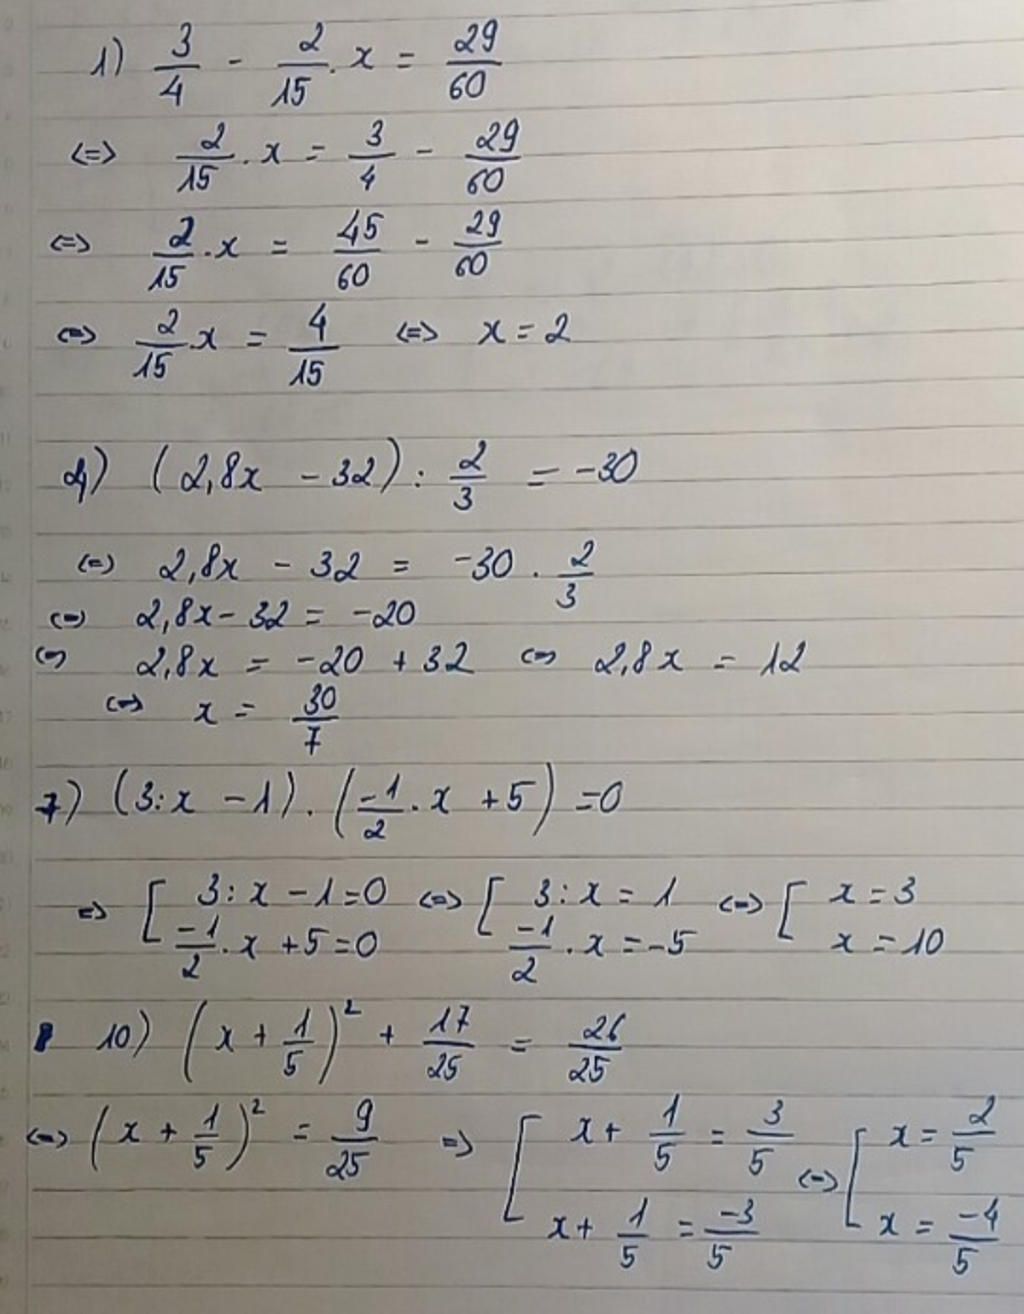 1) 3/4 - 2/15 . x = 29/60
<=> 2/15 . x = 3/4 - 29/60
<=> 2/15 . x = 45/60 - 29/60
<=> 2/15 . x = 4/15 <=> x = 2
4) (2,8x - 32) : 2/3 = -30
<=> 2,8x - 32 = -30 . 2/3
<=> 2,8x - 32 = -20
<=> 2,8x = -20 + 32 <=> 2,8x = 12
<=> x = 30/7
7) (3:x - 1) . (-1/2 . x + 5) = 0
=> [ 3:x - 1 = 0 <=> [ 3:x = 1 <=> [ x = 3
-1/2 . x + 5 = 0 -1/2 . x = -5 x = 10
10) (x + 1/5)² + 17/25 = 26/25
<=> (x + 1/5)² = 9/25 => [ x + 1/5 = 3/5 <=> [ x = 2/5
x + 1/5 = -3/5 x = -4/5